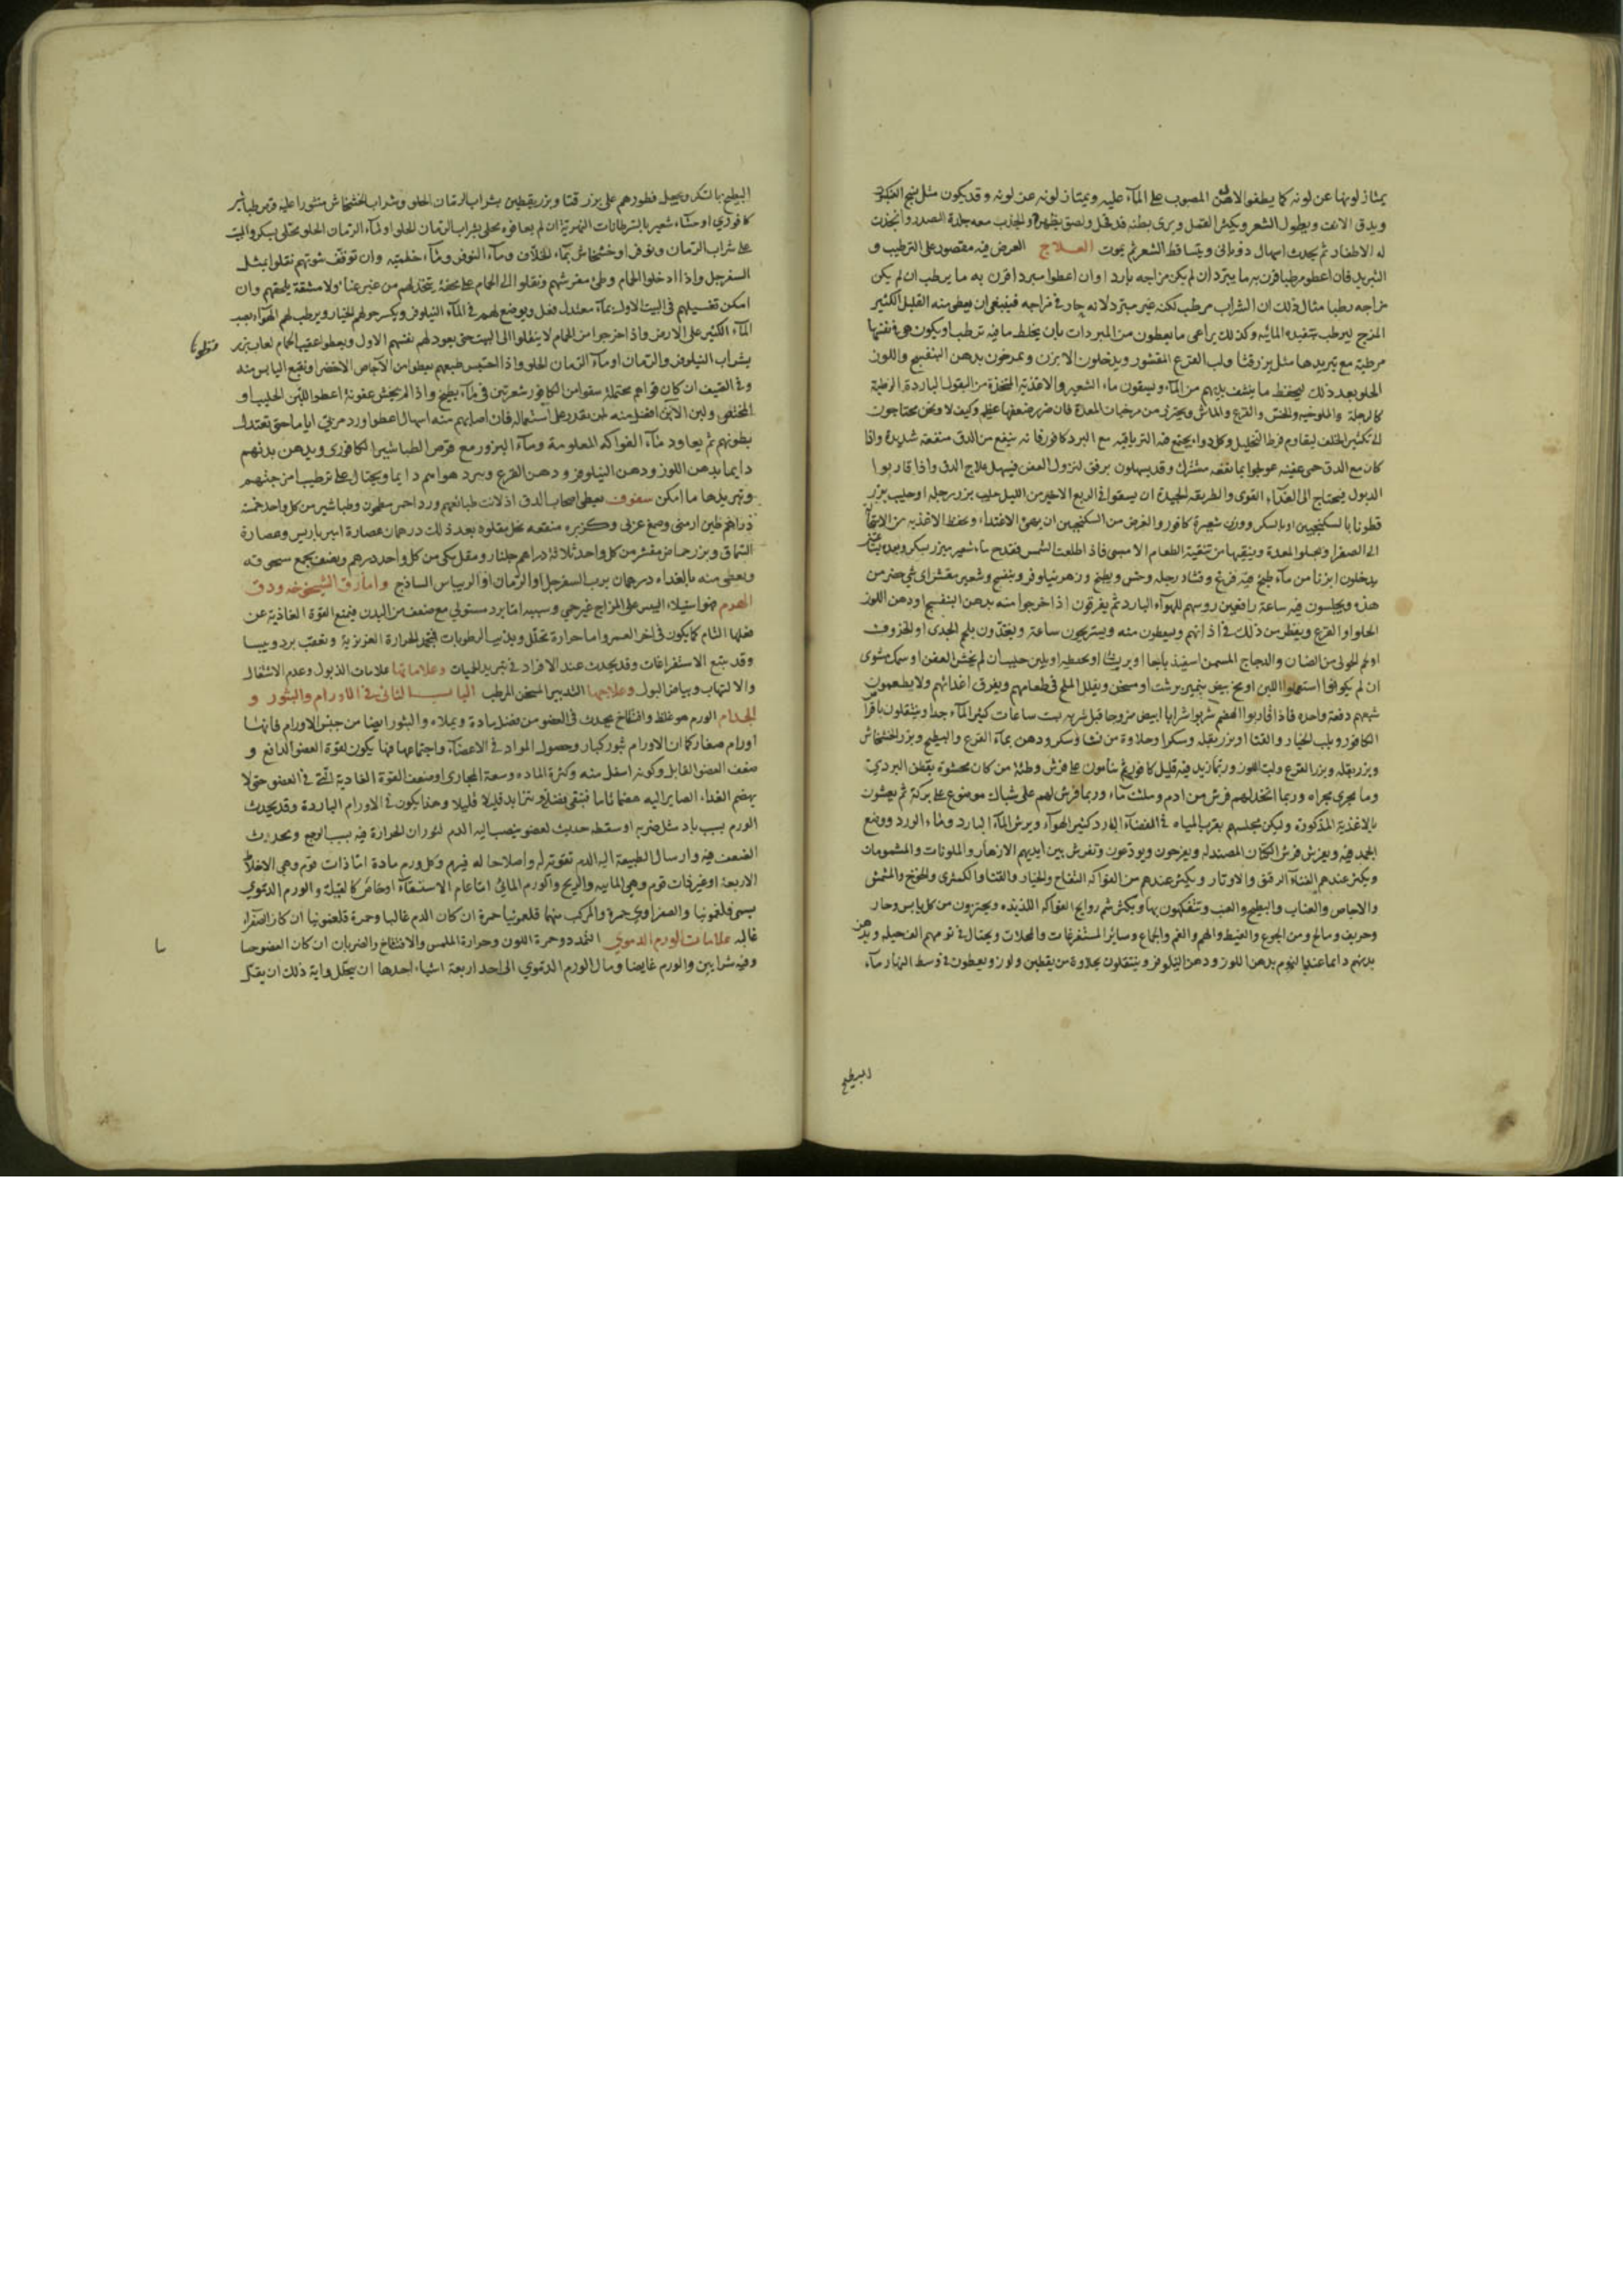 يمتاز لونها عن لونه كما يطفو الدهن المصبوب على المآء عليه ويمتاز لونه عن لونه وقد يكون مثل نسج العنكبوت
ويدق الانف ويطول الشعر ويكثر القمل ويرى بطنه قد قحل ولصق بظهره وانجذب معه جلدة الصدر وانجذبت
له الاظفار ثم يحدث اسهال ذوباني ويتساقط الشعر ثم يموت العلاج الغرض فيه مقصور على الترطيب و
التبريد فان اعطو مرطبا قرن به ما يبرد ان لم يكن مزاجه باردا وان اعطوا مبردا قرن به ما يرطب ان لم يكن
مزاجه رطبا مثال ذلك ان الشراب مرطب لكنه غير مبرد لانه حار في مزاجه فينبغي ان يعطى منه القليل الكثير
المزج ليرطب بتنفيذه المائيه وكذلك يراعى ما يعطون من المبردات بان يخلط ما فيه ترطيبا ويكون هي في نفسها
مرطبة مع تبريدها مثل بزر قثا ولب القرع المقشور ويدخلون الابزن ويمرخون بدهن البنفسج واللوز
الحلو بعد ذلك ليحفظ ما ينشف بدنهم من المآء ويسقون ماء الشعير والاغذية المتخذة من البقول الباردة الرطبة
كالرجلة والملوخيه والخس والقرع والماش ويحترس من مرخيات المعدة فان ضرر ضعفها عظيم وكيف لا ونحن محتاجون
الى تكثير الخلف ليقاوم فرط التحليل وكل دواء يجتمع فيه الترياقيه مع البرد كافور فانه ينفع من الدق منفعة شديدة واذا
كان مع الدق حمى عفنيه عولجوا بما نفعه مشترك وقد يسهلون برفق لتزول العفن فيسهل علاج الدق واذا قاربوا
الذبول فيحتاج الى الغذاء القوى والطريقه الجيدة ان يسقوا في الربع الاخير من الليل حليب بزر رجله او حليب بزر
قطونا بالسكنجبين او بالسكر ووزن شعيرة كافور والغرض من السكنجبين ان يهيئ الاغتذاء ويحفظ الاغذيه من الاستحالة
الى الصفرا ويجلو المعدة وينقيها من بقية الطعام الامسى فاذا طلعت الشمس فقدح ماء شعير ببزر بسكر وبعده
يدخلون ابزنا من مآء طبخ فيه قرع وقثاء ورجله وخس وبطيخ وزهر نيلوفر وبنفسج وشعير مقشر اي شي حضر من
هذه ويجلسون فيه ساعة رافعين روسهم للهوآء البارد ثم يغرقون اذا خرجوا منه بدهن البنفسج او دهن اللوز
الحلو او القرع ويقطر من ذلك في اذانهم ويسعطون منه ويستريحون ساعة ويغذون بلحم الجدى او الخروف
او لحم الحولى من الضان والدجاج المسمن
ان لم يكونوا استعملوا اللبن او مخ بيض نيمبرشت او مسخن ويقلل الملح في طعامهم ويفرق اغذائهم ولا يطعمون
شبعهم دفعة واحده فاذا قاربوا الهضم شربوا شرابا ابيض ممزوجا قبل شربه بست ساعات كثير المآء جدا ويتنقلون باقراص
الكافور وبلب الخيار والقثا او بزر بقله وسكر او حلاوة من نشا وسكر ودهن بمآء القرع والبطيخ وبزر الخشخاش
وبزر بقله وبزر القرع ولب اللوز وربما زيد فيه قليل كافور ثم ينامون على فرش وطئة من كتان محشوة بقطن البردي
وما يجري مجراه وربما اتخذ لهم فرش من ادم وملئت مآء وربما فرش لهم على شباك موضوع على بركة ثم يعشون
بالاغذية المذكوره وليكن مجلسهم بقرب المياه في الفضآء البارد كثير الهوآء ويرش المآء البارد ومآء الورد ووضع
الجمد فيه ويفرش فرش الكتان المصندله ويفرحون ويودعون وتفرش بين ايديهم الازهار والملونات والمشمومات
ويكثر عندهم الغنآء الرقيق والاوتار ويكثر عندهم من الفواكه التفاح والخيار والقثا والكمثرى والخوخ والمشمش
والاجاص والعناب والبطيخ والعنب ويتفكهون بها ويكثر شم روايح الفواكه اللذيذه ويحترزون من كل يابس وحار
وحريف ومالح ومن الجوع والغيظ والهم والغم والجماع وساير المستفرغات والمحللات ويحتال في نومهم الف حيله ويدهن
بدنهم دائما عند النوم بدهن اللوز ودهن النيلوفر ويتنقلون بحلاوة من يقطين ولوز ويعطون في وسط النهار مآء
البطيخ
البطيخ بالسكر ويجعل فطورهم على بزر قثا وبزر يقطين بشراب الرمان الحلو وشراب الخشخاش منثورا عليه قرص طباشير
كافوري او حسآء شعير بالسرطانات النهرية ان لم يعافوه محلى بشراب الرمان الحلو او بمآء الرمان الحلو محلى بسكر والمبيت
على شراب الرمان ونوفر او خشخاش بمآء الخلاف ومآء النوفر ومآء خلبيه وان توقفت شهوتهم نقلوا بمثل
السفرجل واذا ادخلوا الحمام وطئ مفرشهم ونقلوا الى الحمام على محفة يتخذ لهم من غير عناء ولا مشقة يلحقهم وان
امكن تغسيلهم في البيت الاول بمآء معتدل فعل ويوضع لهم في المآء النيلوفر ويكسر حولهم الخيار ويرطب لهم الهوآء بصب
المآء الكثير على الارض واذا خرجوا من الحمام لا ينقلوا الى البيت حتى يعود لهم نفسهم الاول ويعطوا عقيب الحمام لعاب بزر
قطونا
بشراب النيلوفر والرمان او مآء الرمان الحلو واذا احتبس طبعهم يعطوا من الآجاص الاخضر او نقيع اليابس منه
وفي الصيف ان كان قواهم محتملة سقوا من الكافور شعرتين في مآء بطيخ واذا لم يخش عفونة اعطوا اللبن الحليب او
المخيض ولبن الاتن افضل منه لمن يقدر على استعماله فان اصابهم منه اسهال اعطوا ورد مربى اياما حتى تعتدل
بطونهم ثم يعاود مآء الفواكه المعلومة ومآء البزور مع قرص الطباشير الكافورى ويدهن بدنهم
دايما بدهن اللوز ودهن النيلوفر ودهن القرع ويبرد هواهم دايما ويحتال على ترطيب امزجتهم
وتبريدها ما امكن سفوف يعطى اصحاب الدق اذا لانت طبائعهم ورد احمر مطحون وطباشير من كل واحد خمسة
دراهم طين ارمنى وصمغ عربى وكزبره منقعه بخل مقلوه بعد ذلك درهمان عصارة امبر باريس وعصارة
السماق وبزر حماض مقشر من كل واحد ثلاثة دراهم جلنار ومقل مكى من كل واحد درهم ونصف يجمع سحوقه
ويعطى منه بالغداء درهمان برب السفرجل او الرمان او الريباس الساذج واما دق الشيخوخه ودق
الهرم فهو استيلاء اليبس على المزاج غير حمي وسببه اما برد مستولي مع ضعف من البدن فيمنع القوة الغاذية عن
فعلها التام كما يكون في اخر العمر واما حرارة تحلل ويذيب الرطوبات فتجمد الحرارة الغريزية وتعقب برد ويبسا
وقد يتبع الاستفراغات وقد يحدث عند الافراد في تبريد الحميات وعلاماتها علامات الذبول وعدم الاشتعال
والالتهاب وبياض البول وعلاجها التدبير المسخن المرطب الباب الثاني في الاورام والبثور و
الجذام الورم هو غلظ وانتفاخ يحدث في العضو من فضل مادة ويملاه والبثور ايضا من جنس الاورام فانها
اورام صغار كما ان الاورام بثور كبار وحصول المواد في الاعضآء واجتماعها فيها يكون لقوة العضو الدافع و
ضعف العضو القابل وكونه اسفل منه وكثرة الماده وسعة المجارى او ضعف القوة الغاذية التي في العضو حتى لا
يهضم الغذاء الصاير اليه هضما تاما فتبقى فضلة يتزايد قليلا قليلا وهذا يكون في الاورام الباردة وقد يحدث
الورم بسبب باد مثل ضربه او سقطه حدثت لعضو ينصب اليه الدم لثوران الحرارة فيه بسبب الوجع وتحدث
الضعف فيه وارسال الطبيعة اليه الدم تقوية له واصلاحا له فيرم وكل ورم مادة اما ذات قوم وهي الاخلاط
الاربعة او غير ذات قوم وهي المائيه والريح والورم المائي اما عام الاستسقآء او خاص كالقيلة والورم الدموي
يسمى فلغمونيا والصفراوي حمرة والمركب منهما فلغمونيا حمرة ان كان الدم غالبا وحمرة فلغمونيا ان كان الصفراء
غالبه علامات الورم الدموي التمدد وحمرة اللون وحرارة الملمس والانتفاخ والضربان ان كان العضو حساسا
وفيه شرايين والورم غايصا ومال الورم الدموي الى احد اربعة اشياء احدها ان يتحلل واية ذلك ان يقل